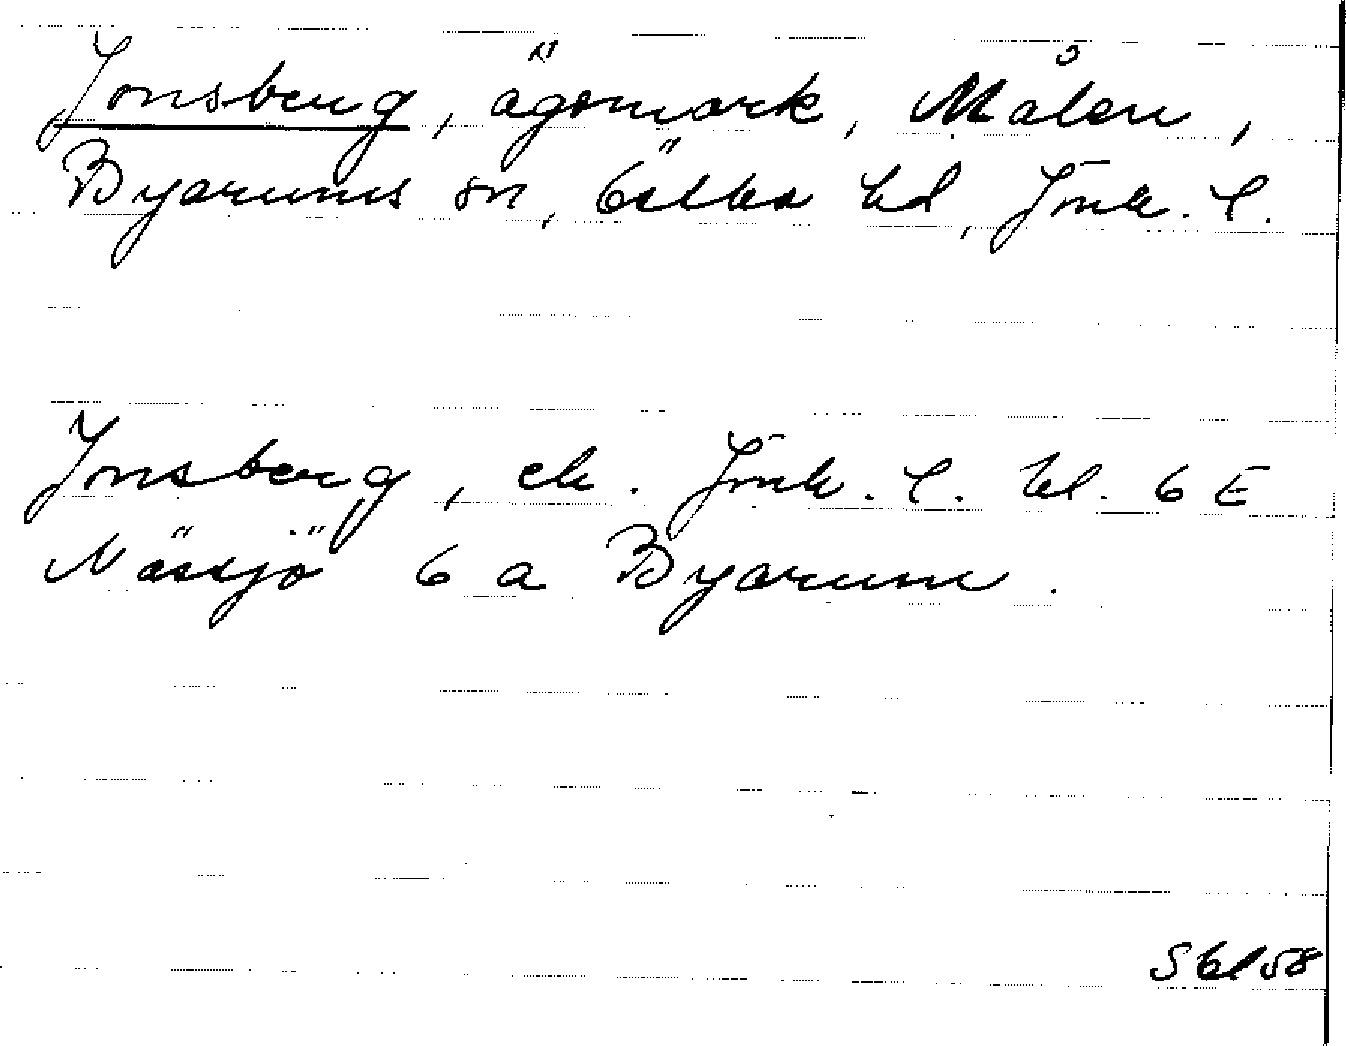 Jonsberg, ägomark, Målen,
Byarums sn, Östbo hd, Jönk. l.
Jonsberg, ek. Jönk. l. bl. 6 E
Nässjö 6 a Byarum.
S bl 58